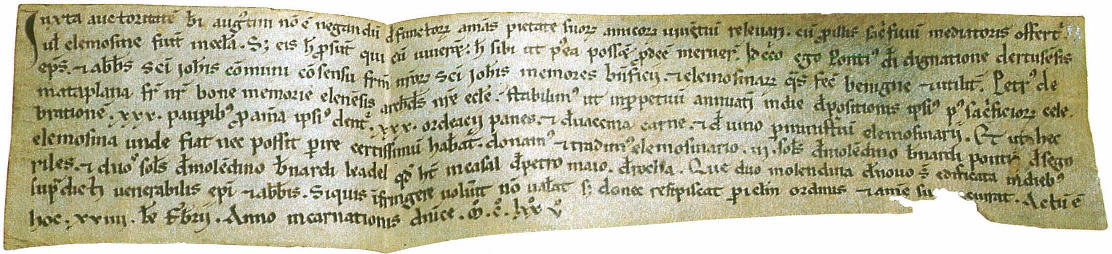 Iuxta auctoritatē bī augustini nō ē negandū defunctorū amās pietate suorū amicorū viventiū relevari. cū pro illis sacrificiū mediatoris offertur
ul elemosine fiunt in eccla. Sꝫ eis h prosunt qui cū viverēt h sibi ut postea possēt pdēe meruer̄. Idcirco ego Pontius di dignatione dertusēsis
eps. et abbs sci Johis cōmuni cōsensu frm nrorū Sci Johis memores bnficij et elemosinarū qs fec benigne et utilit. Petrus de
mataplana fr nr bone memorie elenēsis archids nre eccle. Stabilimus ut in perpetuū annuati in die depositionis ipsius post sacrificiorū cele
brationē. xxx. pauperibus pro anima ipsius dent. xxx. ordeacii panes. et duacema carne. et de vino pro ministriū elemosinarii. Et ut hec
elemosina unde fiat nec possit perire certissimū habeat. donamus et tradimus elemosinario. iii. sols de molēdino bnardi pontii de sego
riles. et duos sols de molēdino bnardi leadel qd ht in easal de petro maio. de rocha. Que duo molendina de novo st edificata in diebus
supdicti venerabilis epi et abbis. Siquis ifringere voluit nō valeat sꝫ donec resipiscat periclm ordinis et anime sue incurrat. Actū ē
hoc. xxiiii. kl Febrii. Anno incarnationis dnice. M. C. lxx v